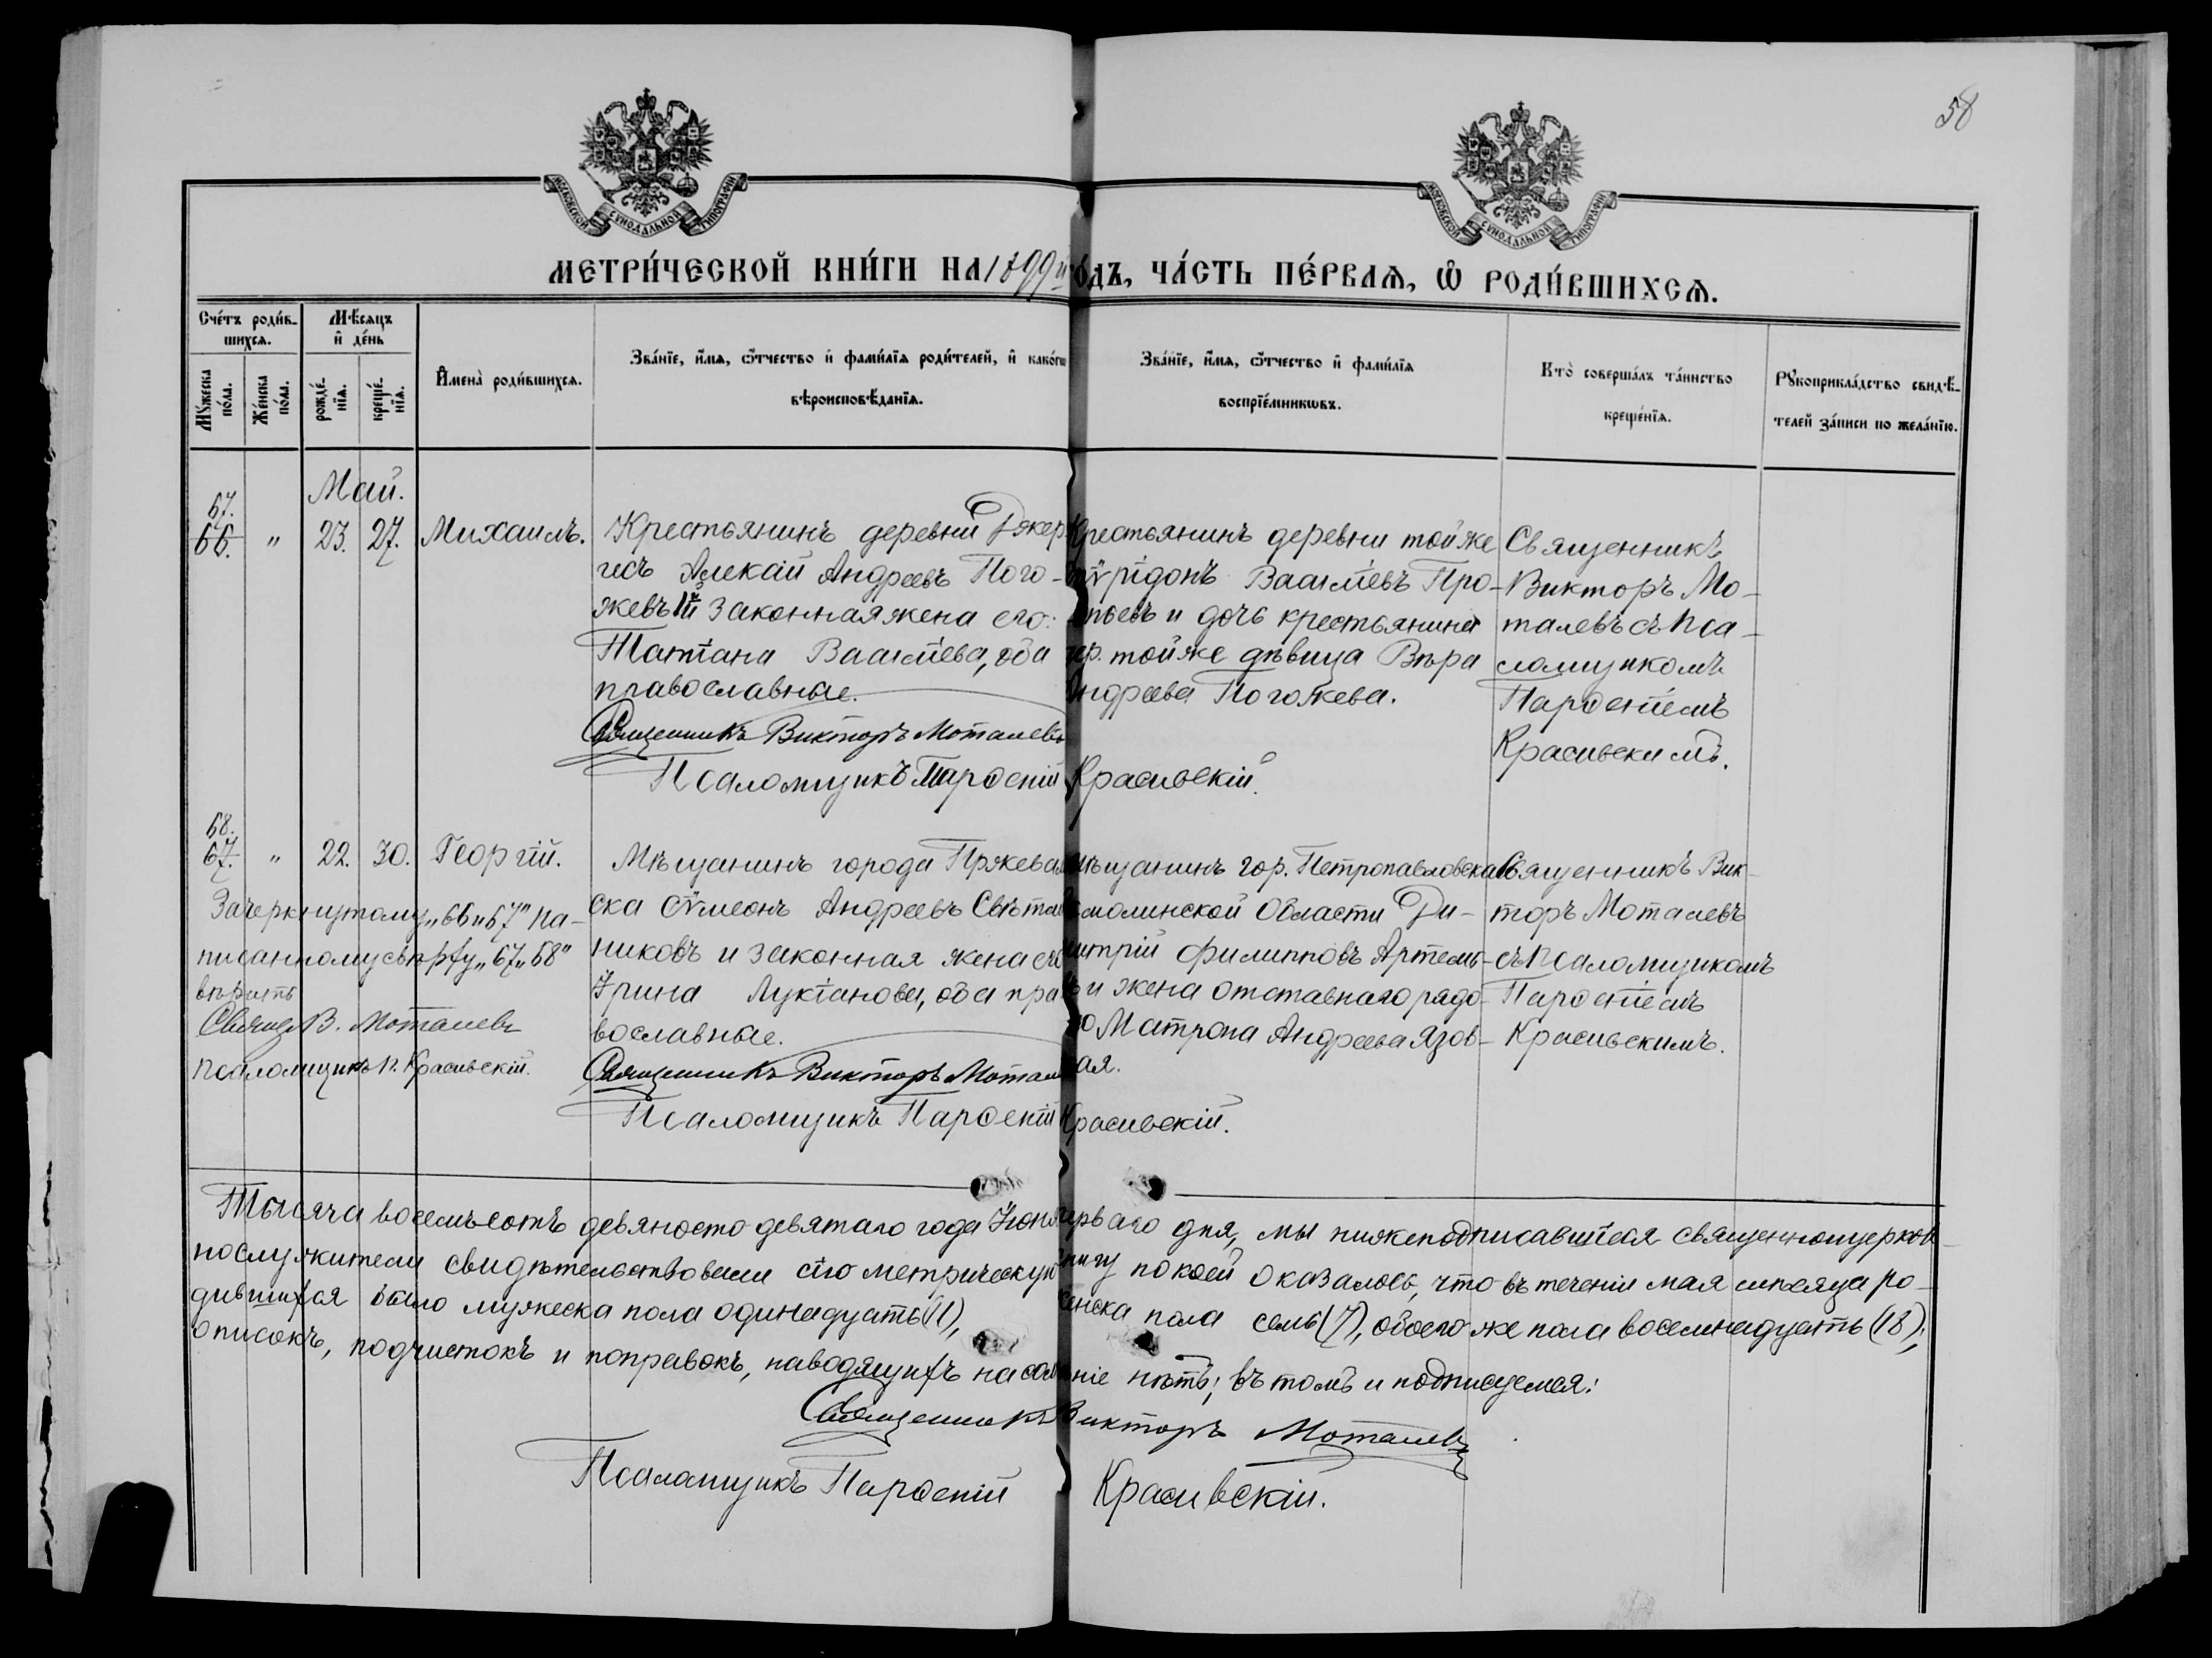 58
МОСКОВСКОЙ СѴНОДАЛЬНОЙ ТИПОГРАФІИ
МОСКОВСКОЙ СѴНОДАЛЬНОЙ ТИПОГРАФІИ
МЕТРИ́ЧЕСКОЙ КНИ́ГИ НА 1899й го́дъ, ЧА́СТЬ ПЕ́РВАѦ, Ѡ҆ РОДИ́ВШИХСѦ.
Сче́тъ роди́в-
шихсѧ.
Мѣ́сѧцъ
и҆ де́нь
Мꙋ́жеска
по́ла.
Же́нска
по́ла.
рожде́-
нїѧ.
креще́-
нїѧ.
И҆мена̀ роди́вшихсѧ.
Зва́нїе, и҆́мѧ, ѻ҆́тчество и҆ фами́лїѧ роди́телей, и҆ како́гѡ
вѣроисповѣ́данїѧ.
Зва́нїе, и҆́мѧ, ѻ҆́тчество и҆ фами́лїѧ
воспрїе́мникѡвъ.
Кто̀ соверша́лъ та́инство
креще́нїѧ.
Рꙋкоприкла́дство свидѣ́-
телей за́писи по жела́нїю.
Май.
67.
66. " 23. 27. Михаилъ.
Крестьянинъ деревни Джер-
гесъ Алексій Андреевъ Пого-
жевъ и законная жена его:
Татіана Василіева, оба
православные.
Священникъ Викторъ Моталевъ
Псаломщикъ Парѳеній Красивскій.
Крестьянинъ деревни той же
Спѵрідонъ Василіевъ Про-
тьевъ и дочь крестьянина
дер. той же дѣвица Вѣра
Андреева Погожева.
Священникъ
Викторъ Мо-
талевъ съ Пса-
ломщикомъ
Парѳеніемъ
Красивскимъ.
68.
67. " 22. 30. Георгій.
Мѣщанинъ города Пржеваль-
ска Сѵмеонъ Андреевъ Свѣтлич-
никовъ и законная жена его
Ирина Лукіанова, оба пра-
вославные.
Священникъ Викторъ Моталевъ
Псаломщикъ Парѳеній Красивскій.
Мѣщанинъ гор. Петропавловска
Акмолинской Области Ди-
митрій Филипповъ Артемь-
евъ и жена отставнаго рядо-
вого Матрона Андреева Язов-
кая.
Священникъ Вик-
торъ Моталевъ
съ Псаломщикомъ
Парѳеніемъ
Красивскимъ.
Зачеркнутому „66 и 67" на-
писанному сверху „67 „68"
вѣрить
Священ. В. Моталевъ
Псаломщикъ П. Красивскій.
Тысяча восемьсотъ девяносто девятаго года Іюня перваго дня, мы нижеподписавшіеся священноцерков-
нослужители свидѣтельствовали сію метрическую книгу по коей оказалось, что въ теченіи мая мѣсяца ро-
дившихся было мужеска пола одинадцать (11), женска пола семь (7), обоего же пола восемнадцать (18);
описокъ, подчистокъ и поправокъ, наводящихъ на сомнѣніе нѣтъ; въ томъ и подписуемся:
Священникъ Викторъ Моталевъ
Псаломщикъ Парѳеній Красивскій.